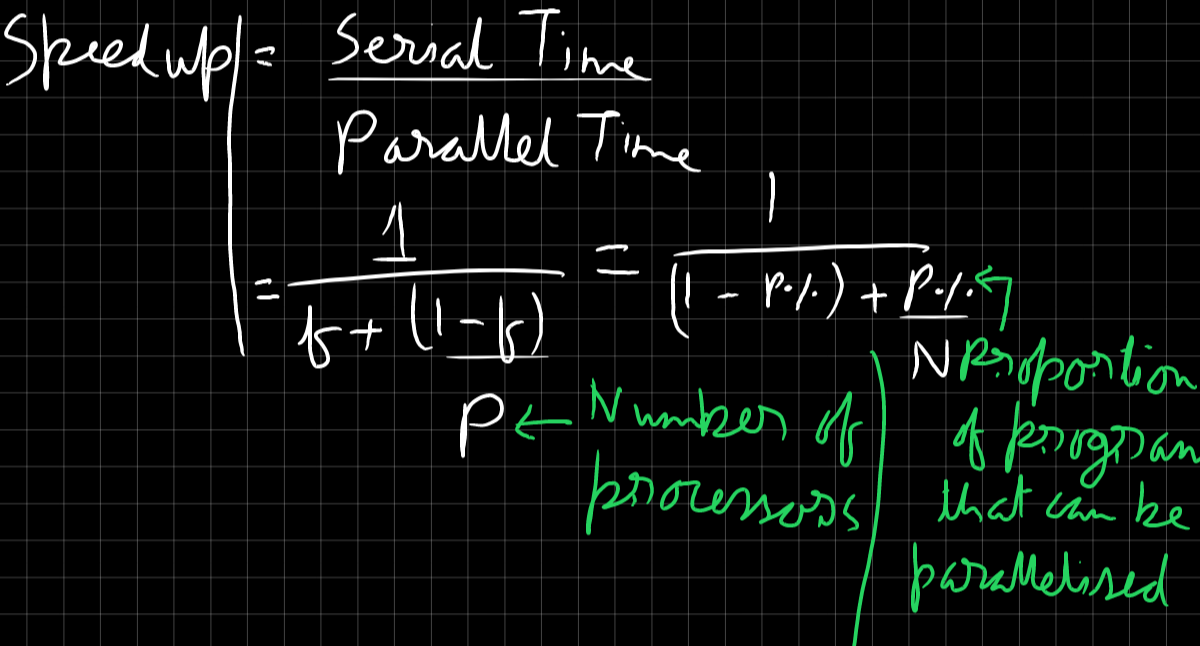 Speedup = Serial Time
Parallel Time
= 1 = 1
f + (1 - f) (1 - P.%) + P.%
P ← Number of processors
N
Proportion
of program
that can be
parallelised